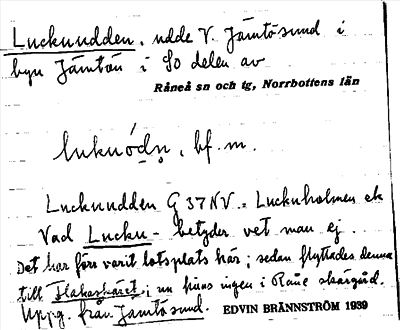 Luckuudden, udde V. Jämtösund i
byn Jämtön i SO delen av
Råneå sn och tg, Norrbottens län
luku̇ódn̥, bf. m.
Luckuudden G 37 NV. = Luckuholmen ek
Vad Lucku- betyder vet man ej.
Det har förr varit lotsplats här; sedan flyttades denna
till ; nu finns ingen i Råne skärgård.
Uppg. från Jämtösund. EDVIN BRÄNNSTRÖM 1939